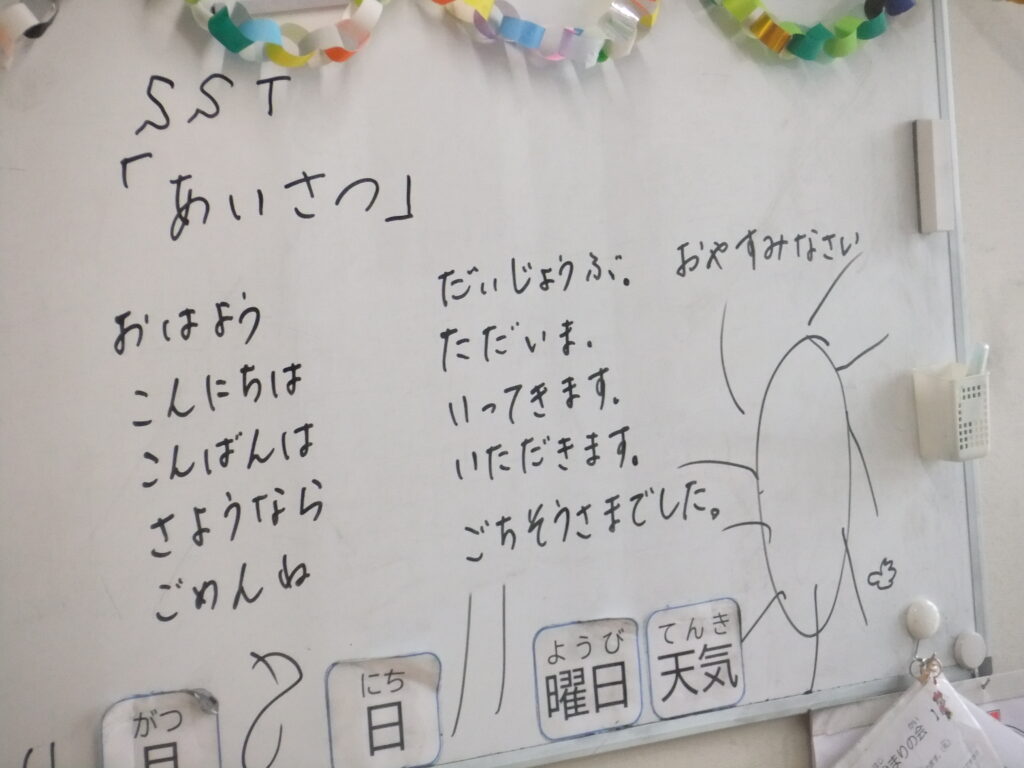 SST
「あいさつ」
おはよう
こんにちは
こんばんは
さようなら
ごめんね
だいじょうぶ。
ただいま。
いってきます。
いただきます。
ごちそうさまでした。
おやすみなさい
がつ
月
にち
日
ようび
曜日
てんき
天気
まりの会